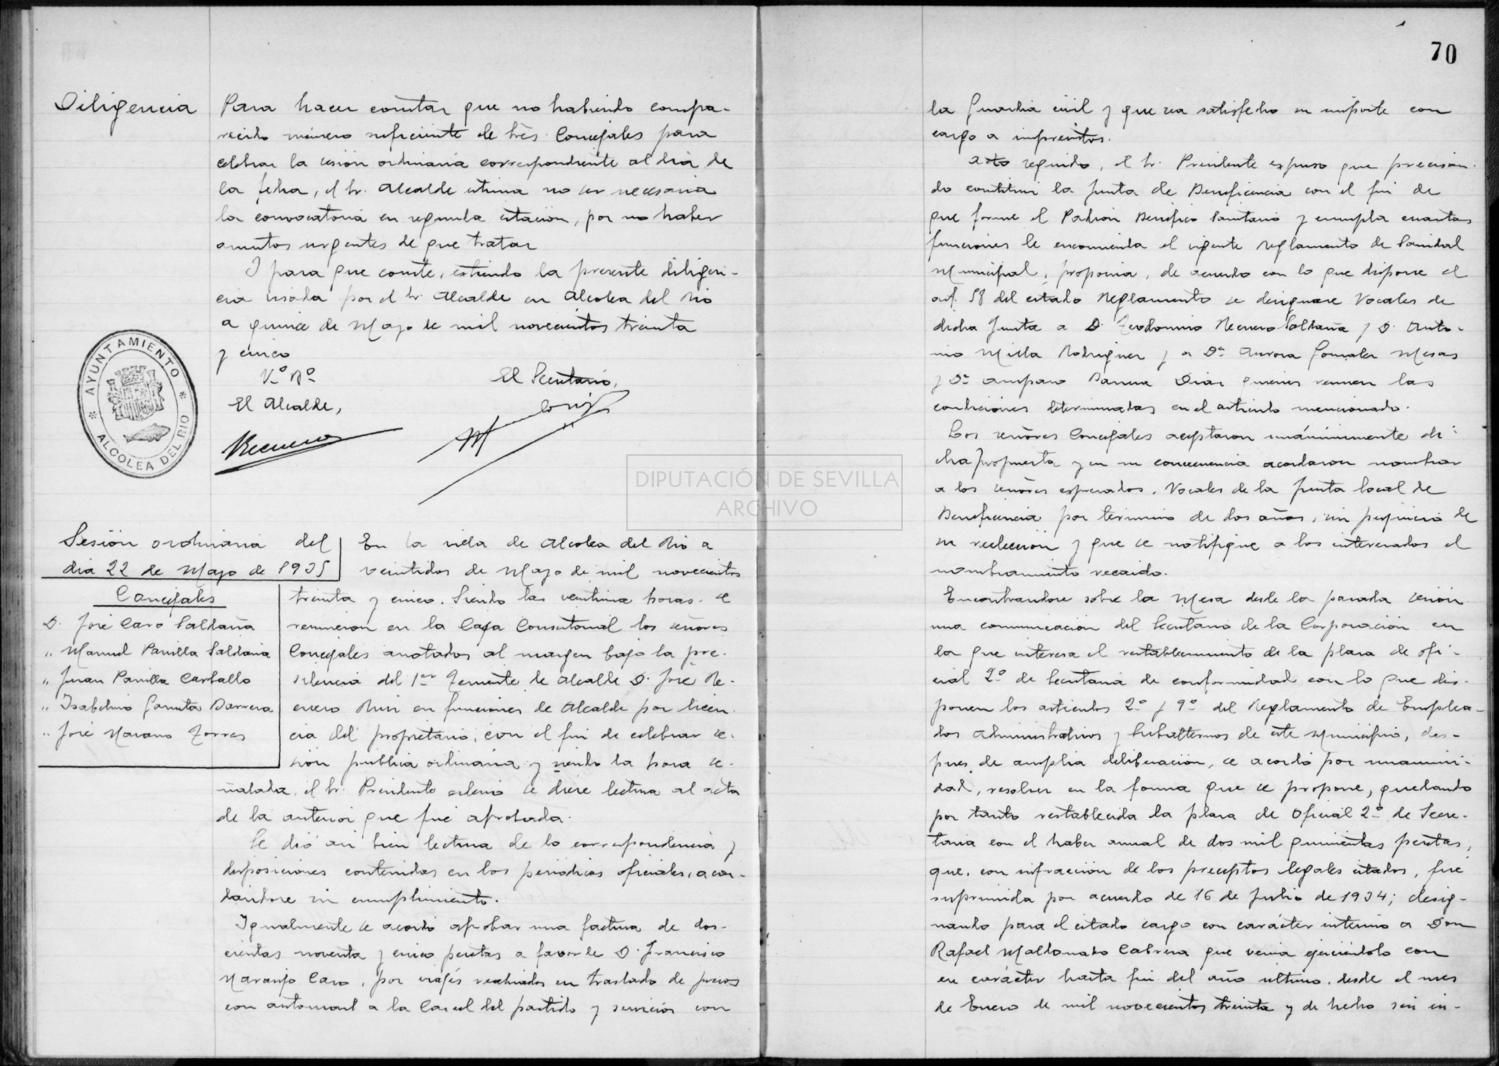 Diligencia
Para hacer constar que no habiendo compa-
recido número suficiente de tres Concejales para
celebrar la sesión ordinaria correspondiente al dia de
la fecha, el Sr. Alcalde estima no ser necesaria
la convocatoria en segunda citación, por no haber
asuntos urgentes de que tratar
Y para que conste, extiendo la presente diligen-
cia visada por el Sr. Alcalde en Alcolea del Rio
a quince de Mayo de mil novecientos treinta
y cinco
Vº Bº
El Alcalde,
El Secretario,
AYUNTAMIENTO
ALCOLEA DEL RIO
DIPUTACIÓN DE SEVILLA
ARCHIVO
Sesión ordinaria del
dia 22 de Mayo de 1935
Concejales
D. José Caro Saldaña
" Manuel Parrilla Saldaña
" Juan Parrilla Carballo
" Isabelino Barrera
" José Naranjo Torres
En la villa de Alcolea del Rio a
veintidos de Mayo de mil novecientos
treinta y cinco. Siendo las veintiuna horas se
reunieron en la Casa Consistorial los señores
Concejales anotados al margen bajo la pre-
sidencia del 1er Teniente de Alcalde D. José Re-
cuero Ruiz en funciones de Alcalde por licen-
cia del propietario, con el fin de celebrar se-
sión publica ordinaria y siendo la hora se-
ñalada, el Sr. Presidente ordenó se diese lectura al acta
de la anterior que fué aprobada.
Se dió asi bien lectura de la correspondencia y
disposiciones contenidas en los periodicos oficiales, acor-
dandose su cumplimiento.
Igualmente se acordó aprobar una factura de dos-
cientas noventa y cinco pesetas a favor de D. Francisco
Naranjo Caro, por viajes realizados en traslado de presos
con automovil a la Carcel del partido y servicios con
70
la Guardia civil y que sea satisfecho su importe con
cargo a imprevistos.
Acto seguido, el Sr. Presidente expuso que precisan-
do constituir la Junta de Beneficencia con el fin de
que forme el Padrón Benéfico Sanitario y cumpla cuantas
funciones le encomienda el vigente Reglamento de Sanidad
Municipal, proponia, de acuerdo con lo que dispone el
art. 58 del citado Reglamento se designase Vocales de
dicha Junta a D. Teodomiro Recuero Saldaña y D. Anto-
nio Milla Rodriguez y a Dª Aurora Gonzalez Mesas
y Dª Amparo Barrera Diaz quienes reunen las
condiciones determinadas en el articulo mencionado.
Los señores Concejales aceptaron unánimemente di-
cha propuesta y en su consecuencia acordaron nombrar
a los señores expresados, Vocales de la Junta local de
Beneficencia por termino de dos años, sin perjuicio de
su reelección y que se notifique a los interesados el
nombramiento recaido.
Encontrandose sobre la Mesa desde la pasada sesión
una comunicación del Secretario de la Corporación en
la que interesa el restablecimiento de la plaza de ofi-
cial 2º de Secretaria de conformidad con lo que dis-
ponen los articulos 2º y 9º del Reglamento de Emplea-
dos administrativos y Subalternos de este Municipio, des-
pues de amplia deliberación, se acordó por unanimi-
dad, resolver en la forma que se propone, quedando
por tanto restablecida la plaza de Oficial 2º de Secre-
taria con el haber anual de dos mil quinientas pesetas,
que, con infracción de los preceptos legales citados, fue
suprimida por acuerdo de 16 de Julio de 1934; desig-
nando para el citado cargo con carácter interino a Don
Rafael Maldonado Cabrera que venia ejerciéndolo con
ese carácter hasta fin del año ultimo, desde el mes
de Enero de mil novecientos treinta y de hecho sin in-